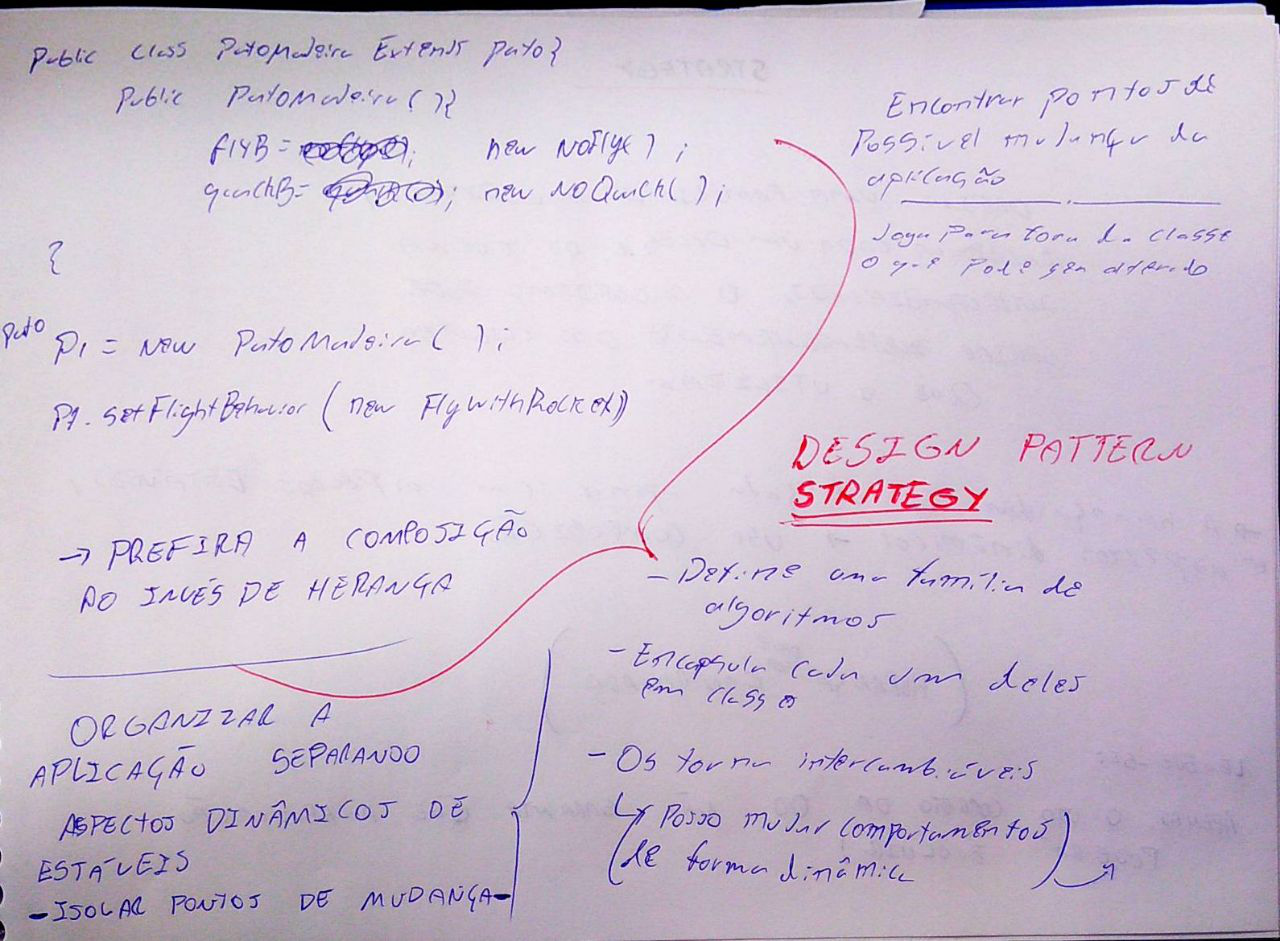 Public Class PatoMadeira Extends pato{
Public PatoMadeira(){
flyB = new NoFly();
quackB= new NoQuack();
}
Pato P1 = New PatoMadeira();
P1.setFlightBehavior(new FlyWithRocket)
→ PREFIRA A COMPOSIÇÃO
AO INVÉS DE HERANÇA
ORGANIZAR A
APLICAÇÃO SEPARANDO
ASPECTOS DINÂMICOS DE
ESTÁVEIS
- ISOLAR PONTOS DE MUDANÇA -
Encontrar pontos de
Possível mudança da
aplicação
Joga Para fora da classe
O que Pode ser alterado
DESIGN PATTERN
STRATEGY
- Define uma família de
algoritmos
- Encapsula cada um deles
em classe
- Os torna intercambiáveis
↳ Posso mudar comportamentos
de forma dinâmica